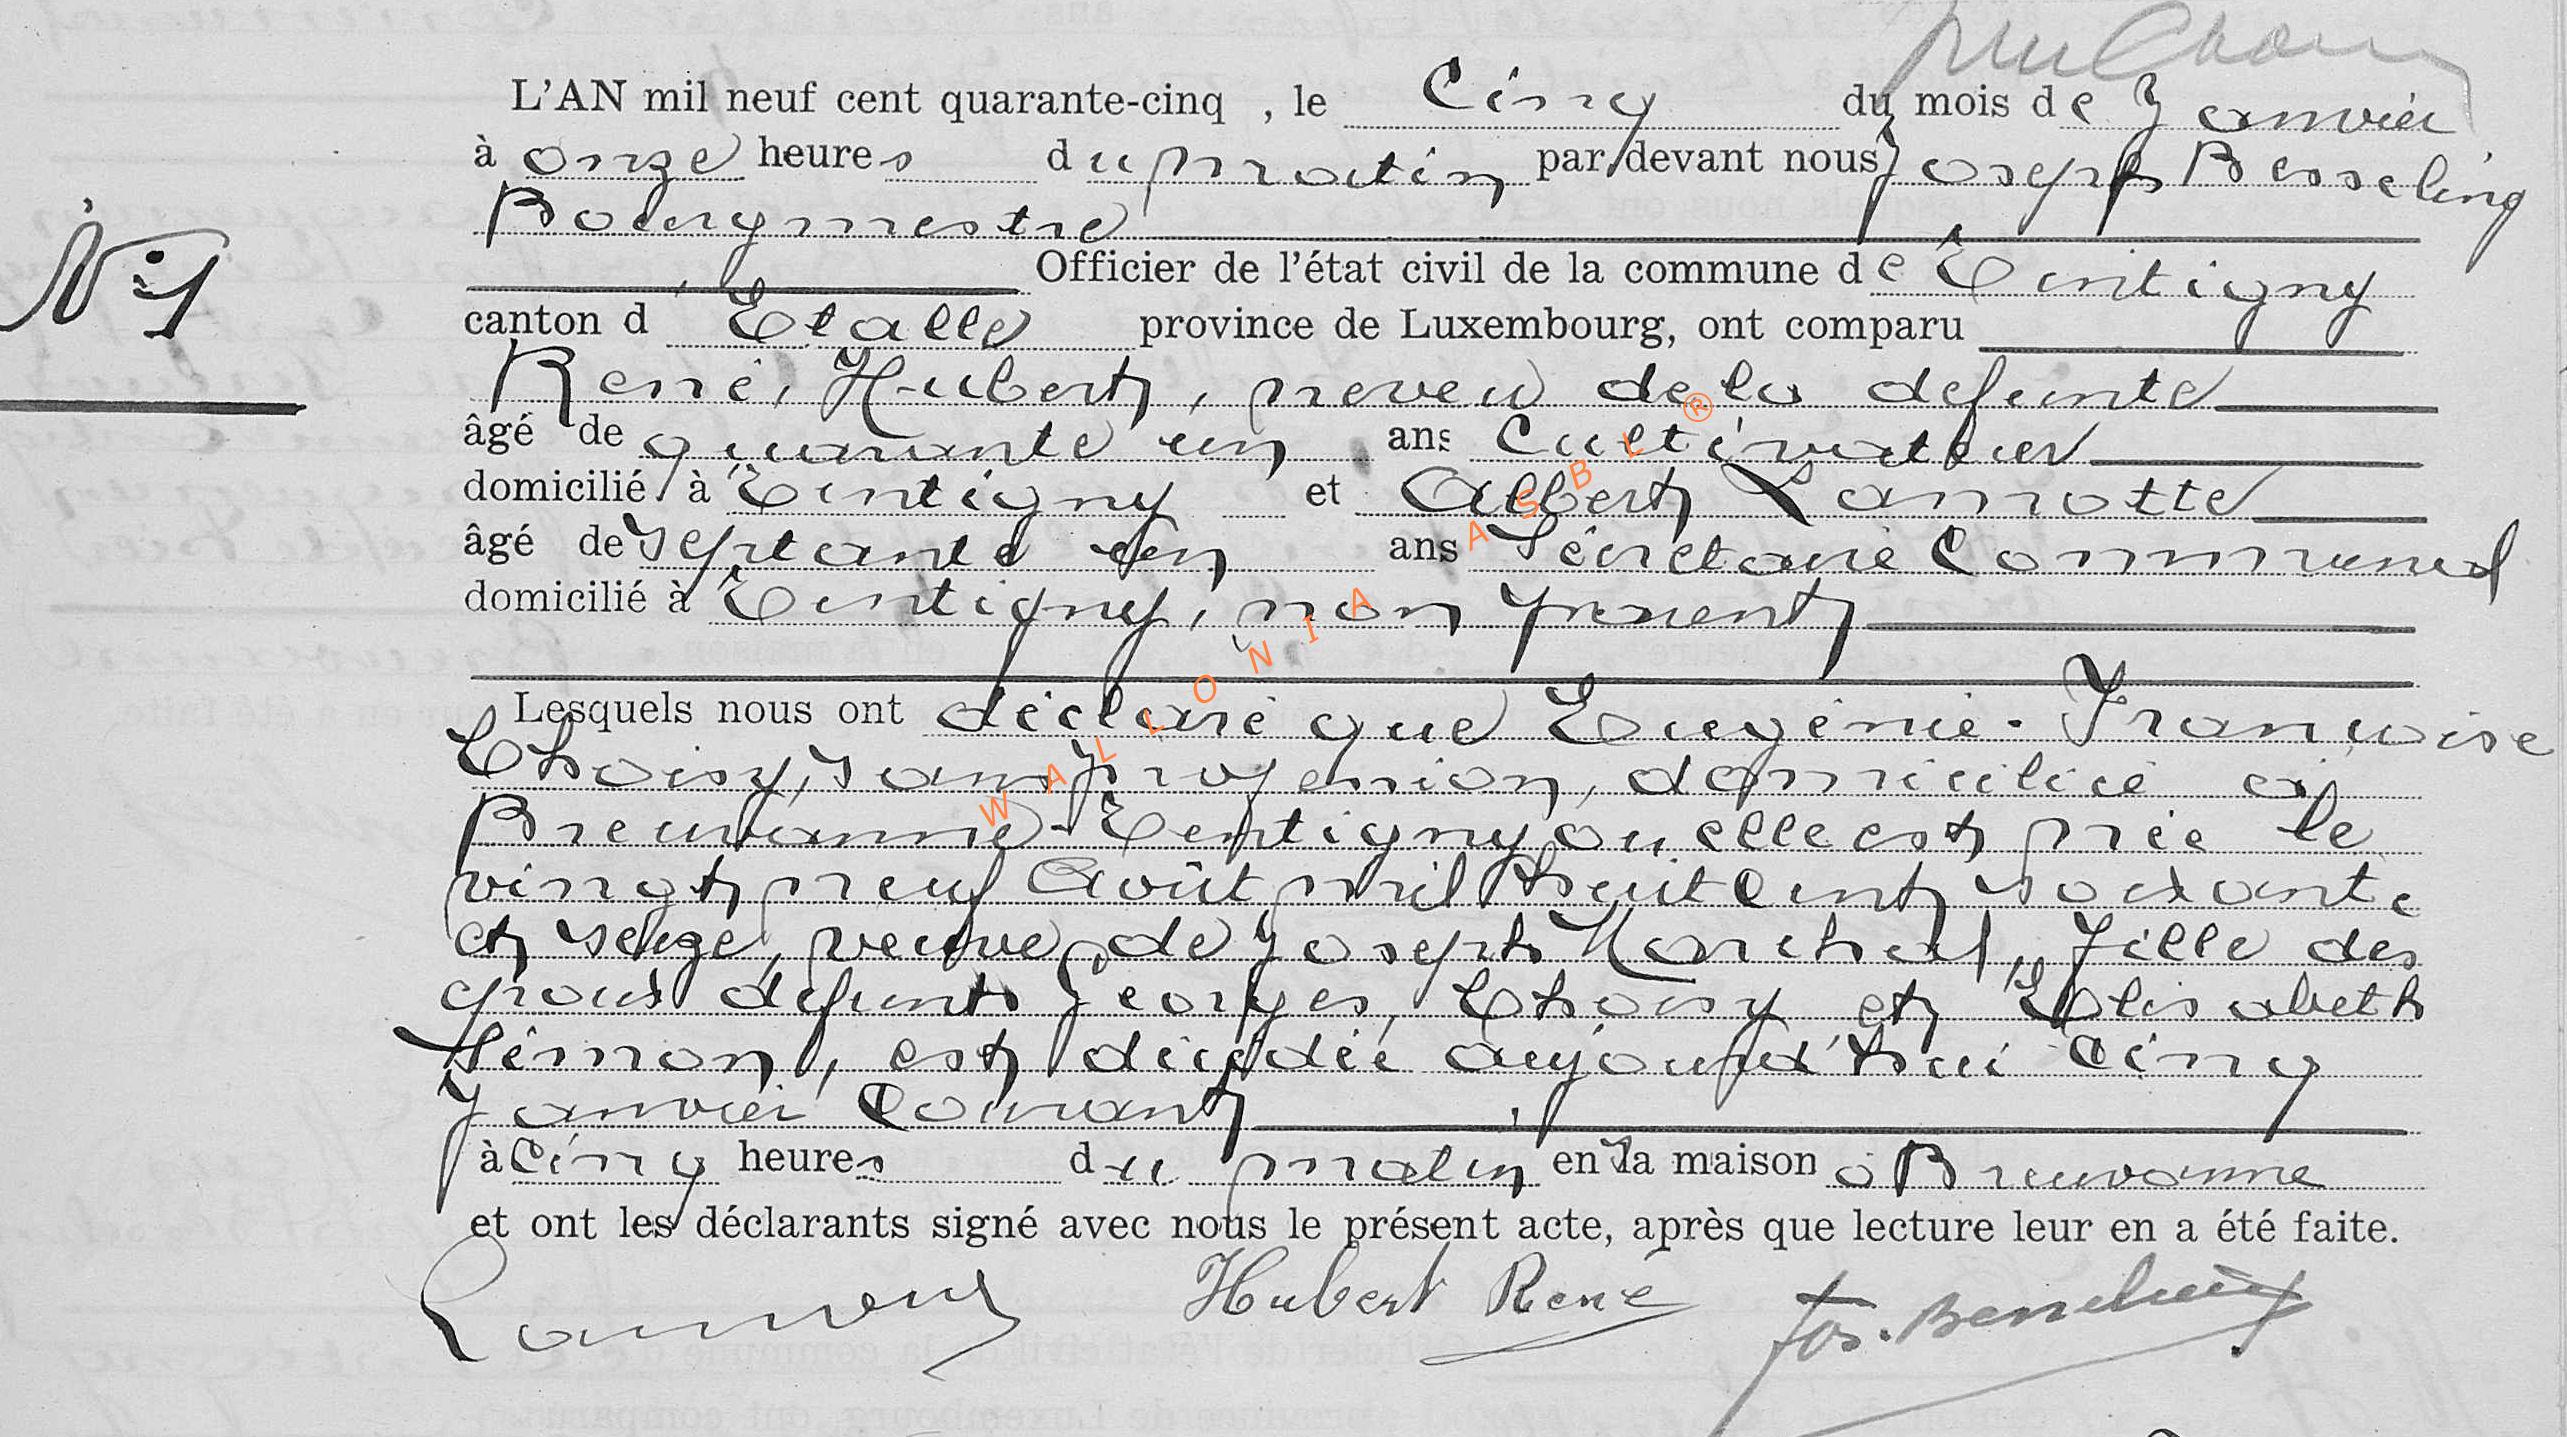 L'AN mil neuf cent quarante-cinq , le Cinq du mois de Janvier
à onze heures du matin par devant nous Joseph Besseling
Bourgmestre
N° 1
Officier de l'état civil de la commune de Tintigny
canton d Etalle province de Luxembourg, ont comparu
René, Hubert, neveu de la defunte
âgé de quarante un ans Cultivateur
domicilié à Tintigny et Albert Lamotte
âgé de septante un ans Sécretaire Communal
domicilié à Tintigny, non parent
Lesquels nous ont déclaré que Eugénie-Françoise
Thoisy, sans profession, domiciliée à
Breuvanne-Tintigny ou elle est née le
vingt neuf Août mil huit Cent soixante
et seize, veuve de Joseph Marchal, fille des
époux défunts Georges, Thoisy et Elisabeth
Simon, est décédée aujourd'hui Cinq
Janvier Courant,
à Cinq heures du matin en sa maison à Breuvanne
et ont les déclarants signé avec nous le présent acte, après que lecture leur en a été faite.
Hubert René
WALLONIA ASBL ®